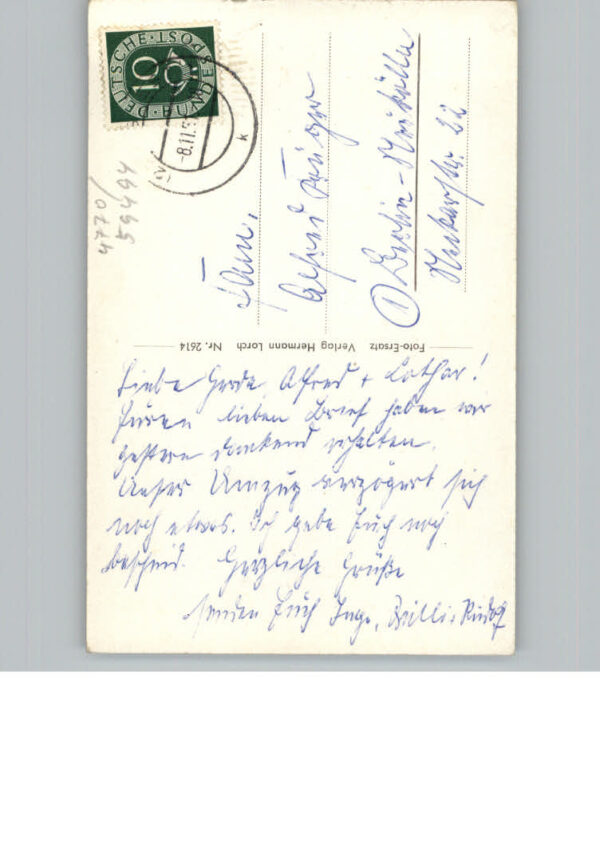 DEUTSCHE·BUNDESPOST
10
-8.11.5
k
4770/
59494
Fam.
Alfred Krüger
① Berlin-Neukölln
Neckarstr. 22
Foto-Ersatz Verlag Hermann Lorch Nr. 2614
Liebe Gerda Alfred + Lothar!
Euren lieben Brief haben wir
gestern dankend erhalten.
Unser Umzug verzögert sich
noch etwas. Ich gebe Euch noch
bescheid. Herzliche Grüße
senden Euch Inge, Willi + Rudolf